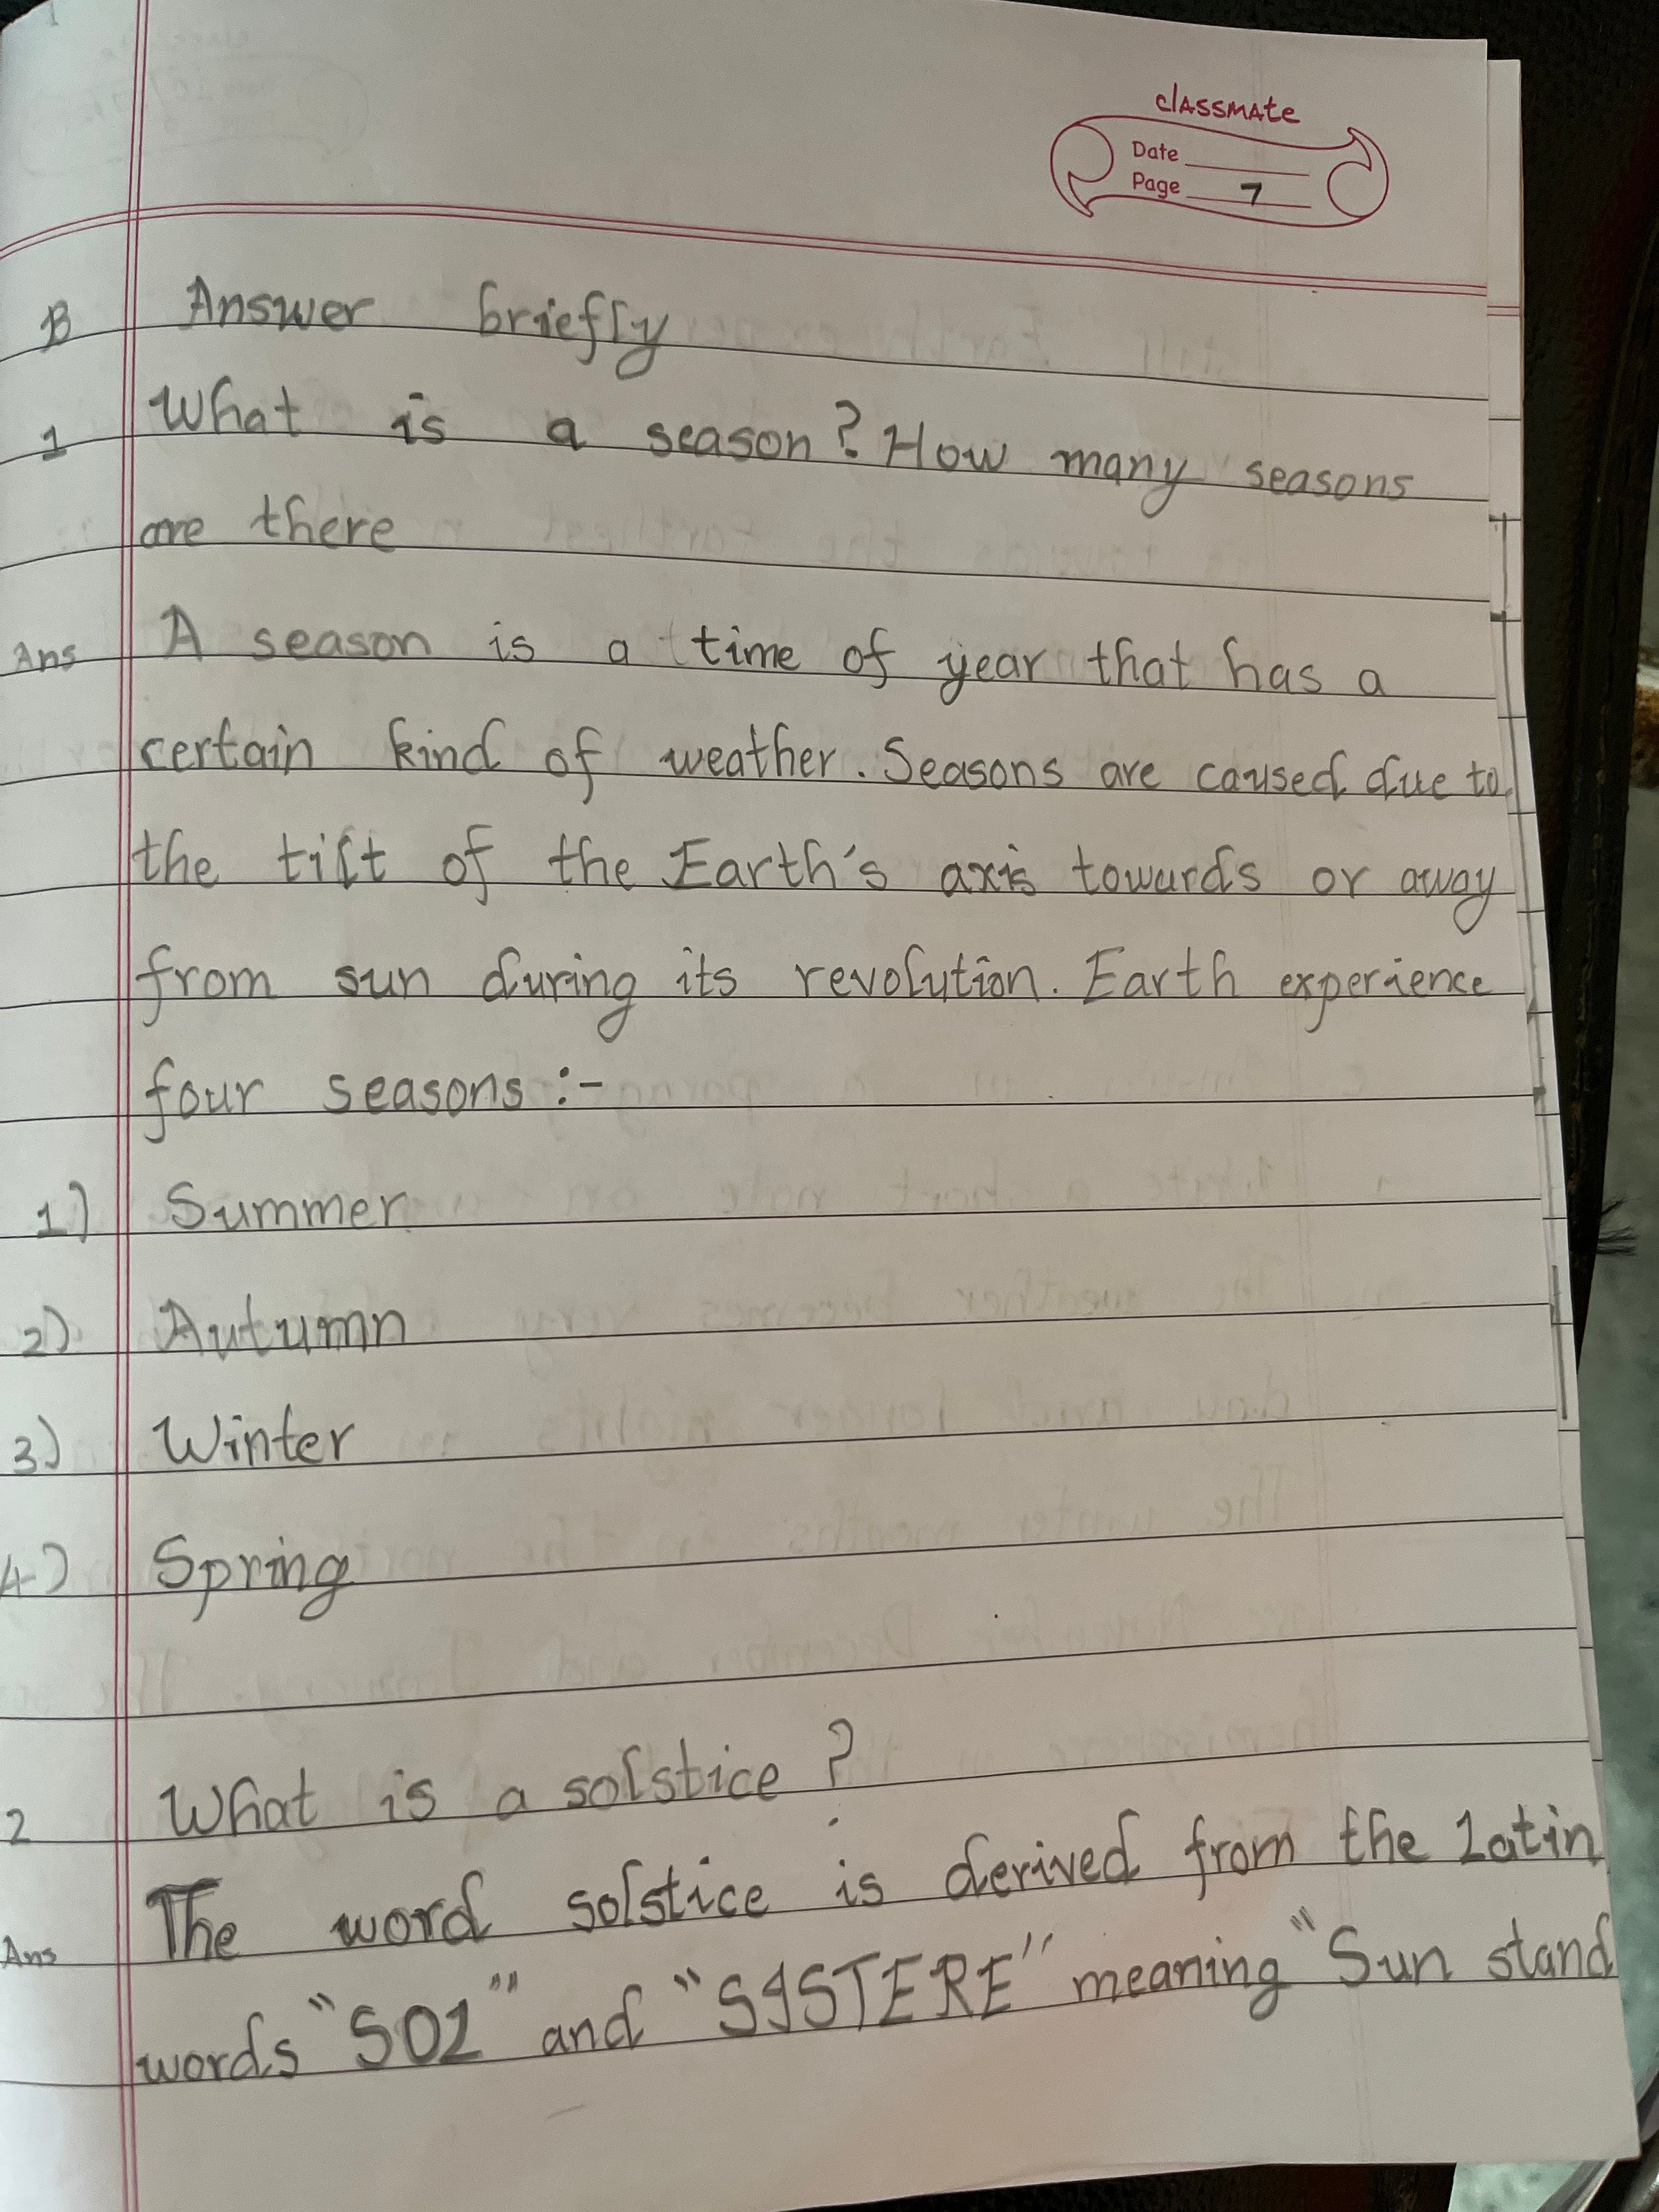 classmate
Date
Page 7
B Answer briefly
1 What is a season? How many seasons
are there
Ans A season is a time of year that has a
certain kind of weather. Seasons are caused due to
the tilt of the Earth's axis towards or away
from sun during its revolution. Earth experience
four seasons :-
1) Summer
2) Autumn
3) Winter
4) Spring
2 What is a solstice ?
Ans The word solstice is derived from the Latin
words "SOL" and "SISTERE" meaning "Sun stand